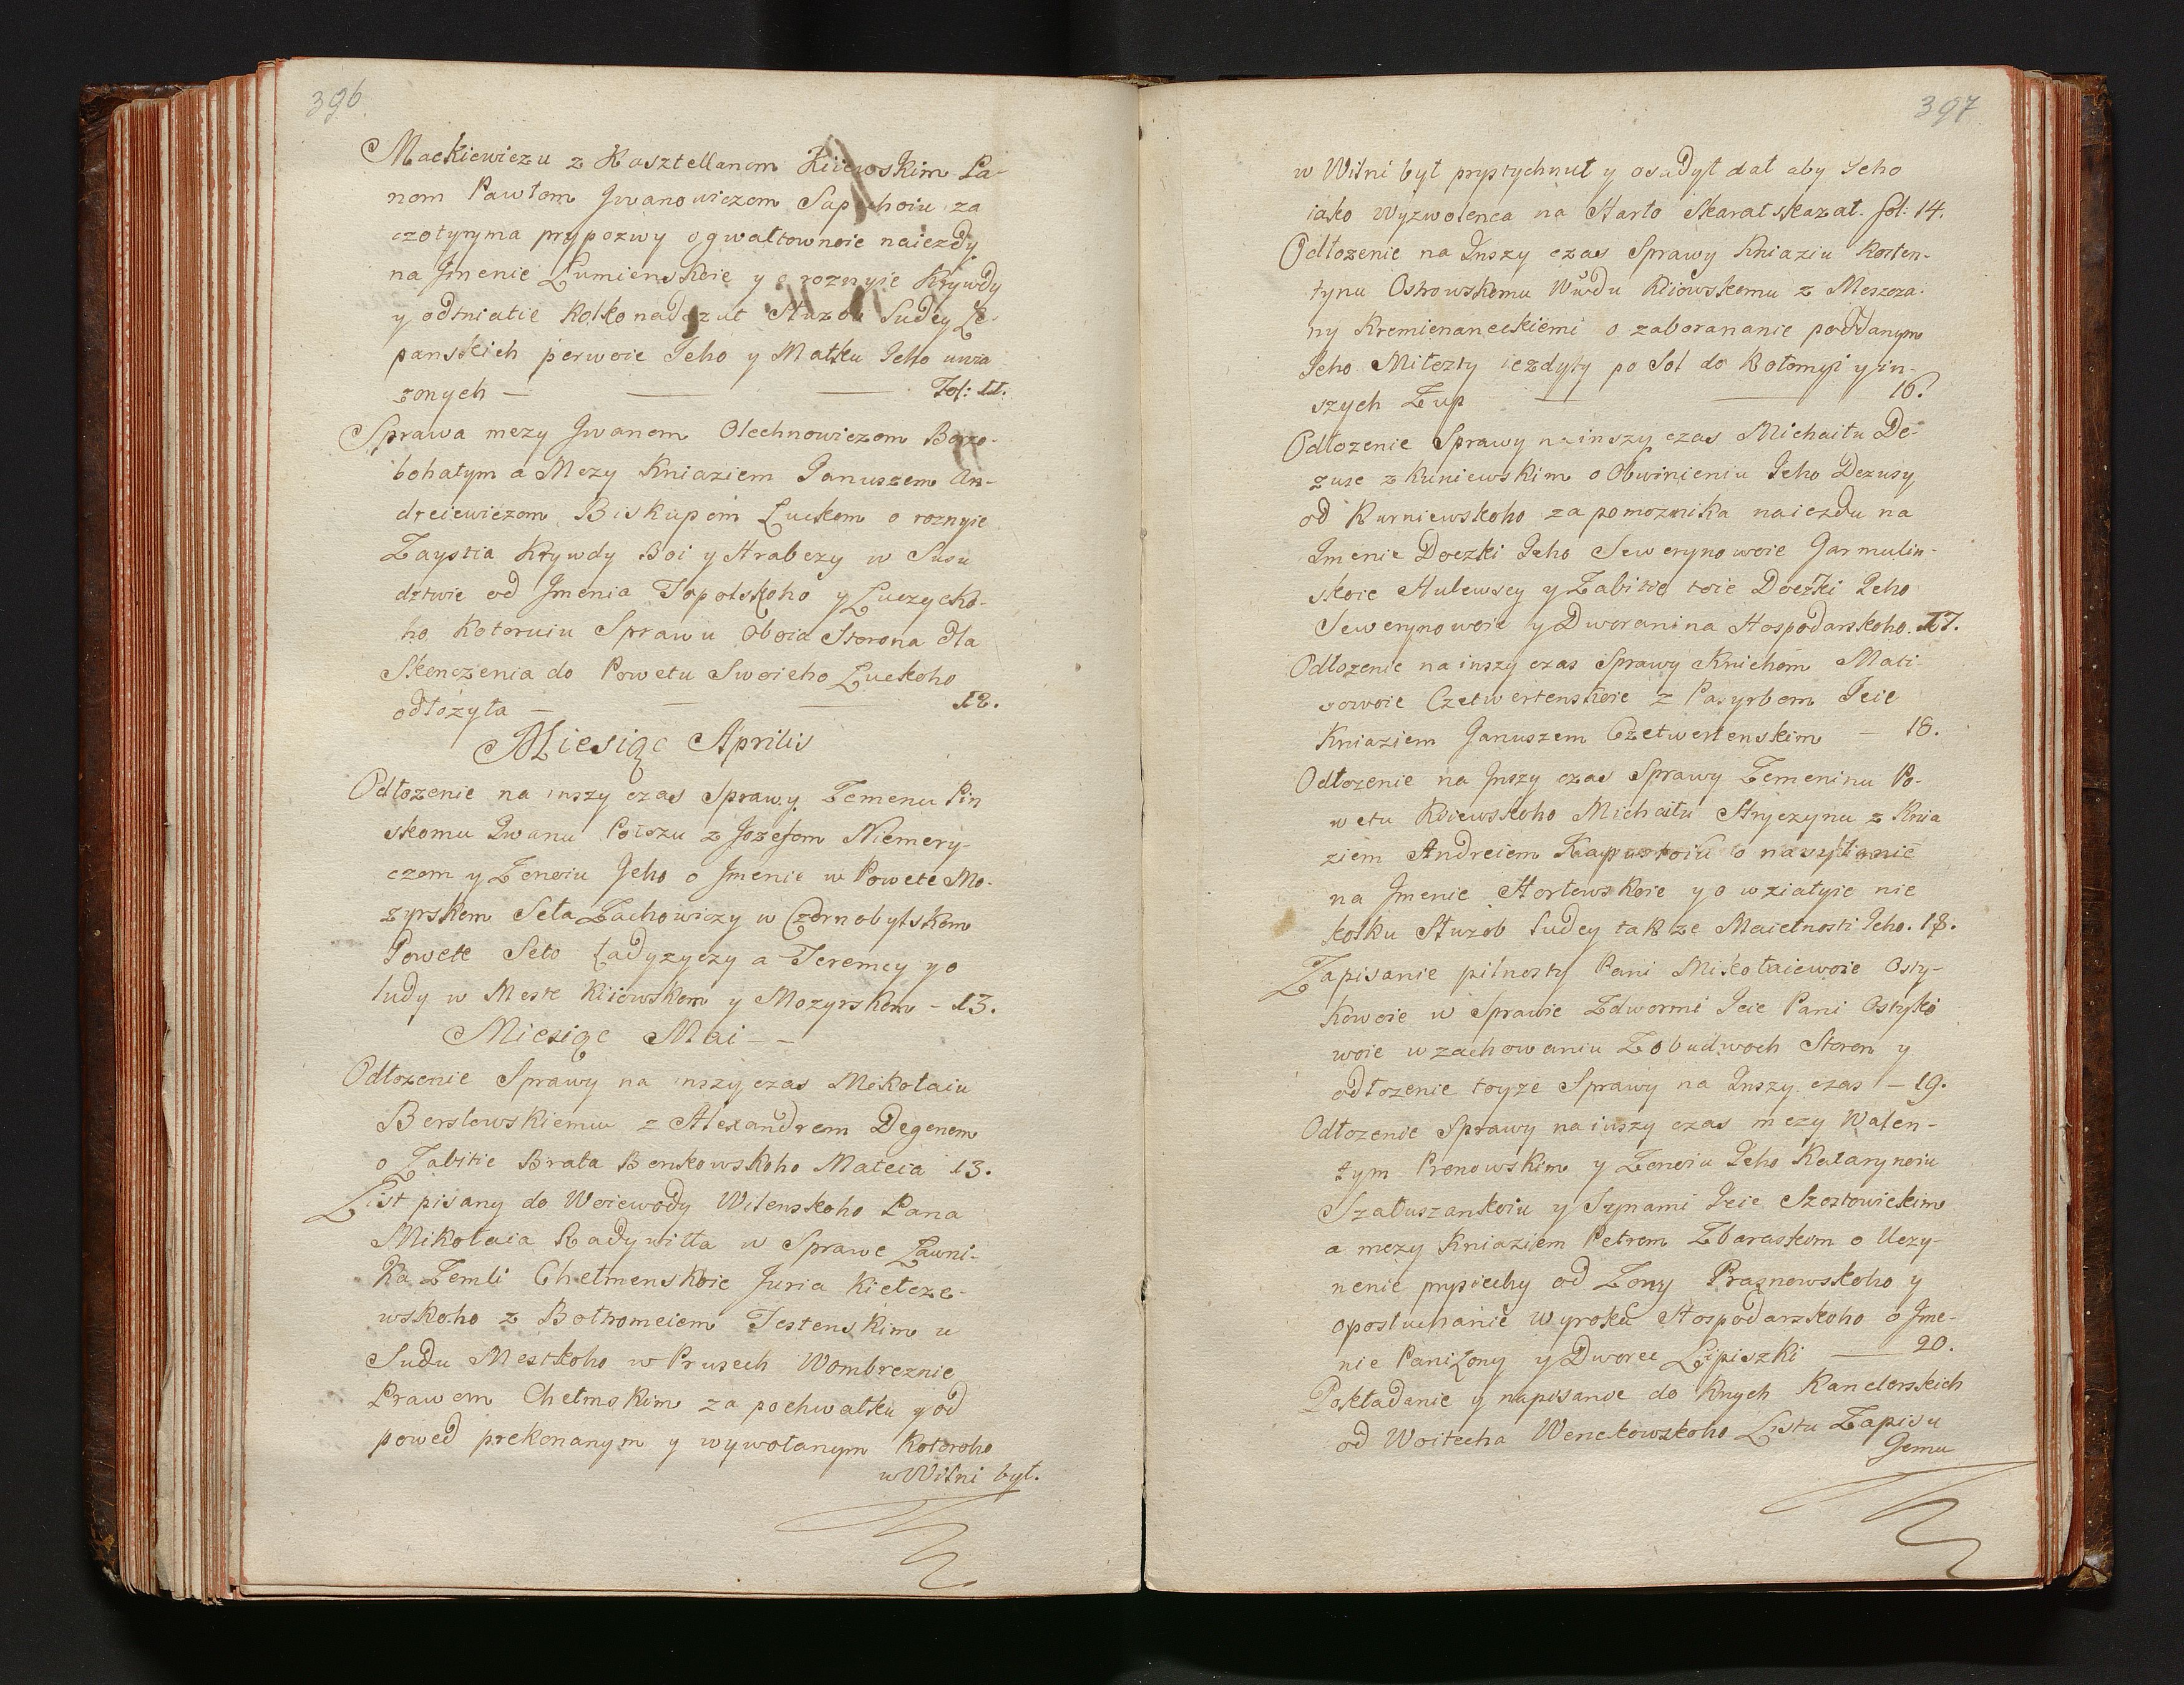 396
Mackiewiczu z Kasztellanom Kiiewskim Pa-
nom Pawłom Jwanowiczom Sapiehoiu za
czotyryma prypozwy o gwałtownoie naiezdy
na Jmenie Lumienskoie y o roznyie Krywdy
y odtniatie Kolkonadczat Słuzob Ludey Le-
panskich perwoie Jeho y Matku Jeho uwia
zonych — — — Fol: 11.
Sprawa mezy Jwanom Olechnowiczom Borzo-
bohatym a Mezy Kniaziem Januszem An-
dreiewiczom Biskupom Łuckom o roznyie
Zaystia Krywdy Boi y Hrabezy w Susu
dztwie od Jmenia Topolskoho y Łuczycko-
ho Kotoruiu Sprawu Oboia Storona dla
Skonczenia do Powetu Swoieho Łuckoho
odłożyła — — — 12.
Miesiąc Aprilis
Odłozenie na inszy czas Sprawy Zemenu Pin
skomu Jwanu Poiszu z Jozefom Niemery-
czom y Zenoiu Jeho o Jmenie w Powete Mo-
zyrskom Seła Zachowiczy w Czornobylskom
Powete Seło Ładyzyczy a Jeremcy y o
ludy w Meste Kiiowskom y Mozyrskom - 13.
Miesiąc Mai - -
Odłozenie Sprawy na inszy czas Mikołaiu
Berslowskiemu z Alexandrom Degenem
o Zabitie Brata Benkowskoho Mateia 13.
List pisany do Woiewody Wilenskoho Pana
Mikołaia Radywiłła w Sprawe Ławni-
Ka Zemli Chełmenskoie Juria Kiełcze-
wskoho z Bołtromeiem Jestenskim u
Sudu Mestkoho w Prusech Wombreznie
Prawom Chełmskim za pochwałku y od
powed prekonanym y wywołanym Kotoroho
w Wilni był.
397
w Wilni był prystychnut y osudył dał aby Jeho
iako Wyzwolenca na Harło Skarał skazał. fol: 14.
Odłozenie na Jnszy czas Sprawy Kniaziu Kosten-
tynu Ostrowskomu Wwdu Kiiowskemu z Meszcza-
ny Kremienaneckiemi o zaboronanie poddanym
Jeho Miłosty iezdyty po Sol do Kołomyi y in-
szych Zup — — 16.
Odłozenie Sprawy na inszy czas Michaiłu De-
zuse z Kuniewskim o Obwinieniu Jeho Dezusy
od Kurniewskoho za pomoznika naiezdu na
Jmenie Doczki Jeho Sewerynowoie Jarmulin-
skoie Hulewsey y Zabitie toie Doczki Jeho
Sewerynowoie y Dworanina Hospodarskoho. 17.
Odłozenie na inszy czas Sprawy Knichom Mati-
sowoie Czetwertenskoie z Pasyrbom Jeie
Kniaziem Januszem Czetwertenskim — 18.
Odłozenie na Jnszy czas Sprawy Zemeninu Po-
wetu Kiiewskoho Michaiłu Hryczynu z Knia
ziem Andreiem Kapustoiu o nasyłanie
na Jmenie Hortowskoie y o wziatyie nie
kolku Słuzob ludey takze Maietnosti Jeho. 18.
Zapisanie pilnosty Pani Mikołaiewoie Osty-
Kowoie w Sprawie Zdwormi Jeie Pani Ostyko
woie w zachowaniu Zobudwoch Storon y
odłozenie toyze Sprawy na Jnszy czas — 19.
Odłozenie Sprawy na inszy czas mezy Walen-
tym Pronowskim y Zenoiu Jeho Katarynoiu
Szałuszanskoiu y Synami Jeie Szostowickim
a mezy Kniaziem Petrom Zbaraskom o Uczy-
nenie prysiehy od Zony Praznowskoho y
oposłuchanie Wyroku Hospodarskoho o Jme-
nie Pani Zony y Dworec Lipiszki — 20.
Pokładanie y napisanie do Knych Kanclerskich
od Woitecha Wenckowskoho Listu Zapisu
Jemu